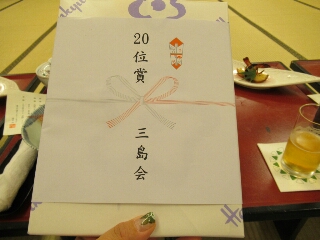 20位賞
三島会